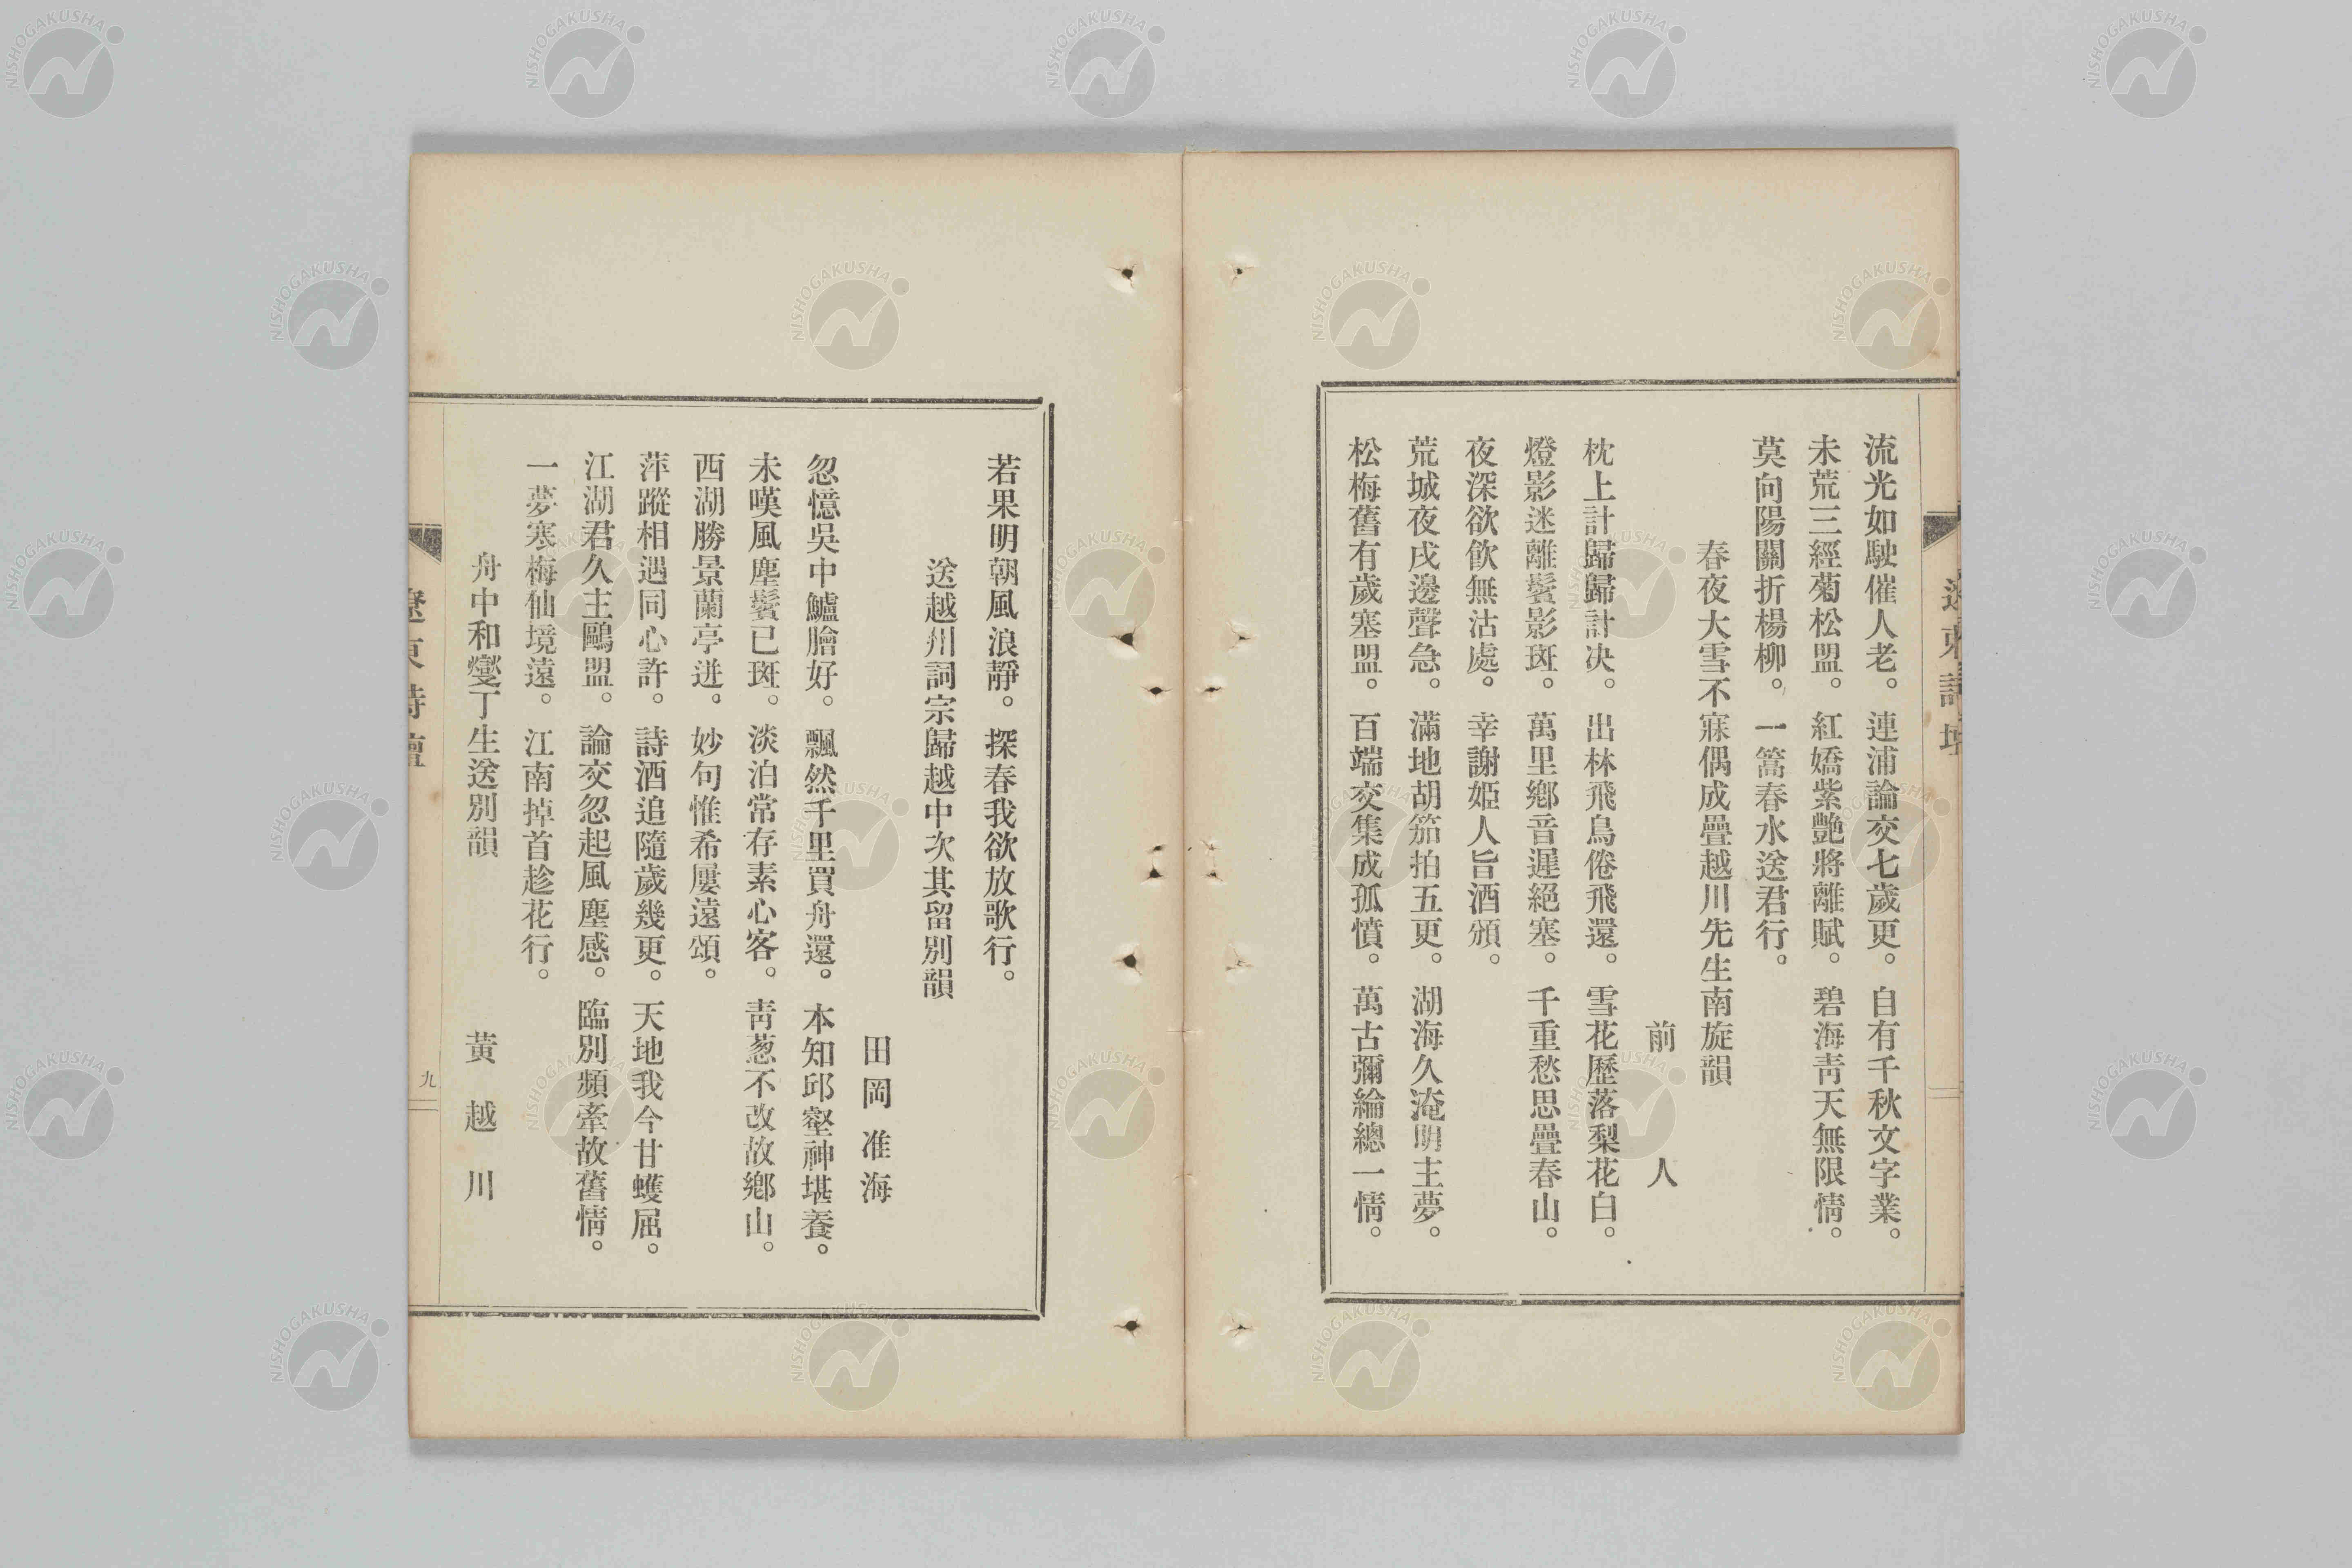 流光如駛催人老。連浦論交七歲更。自有千秋文字業。
未荒三經菊松盟。紅嬌紫艷將離賦。碧海靑天無限情。
莫向陽關折楊柳。一篙春水送君行。
春夜大雪不寐偶成疊越川先生南旋韻
前人
枕上計歸歸計决。出林飛鳥倦飛還。雪花歷落梨花白。
燈影迷離鬢影斑。萬里鄕音遲絕塞。千重愁思疊春山。
夜深欲飮無沽處。幸謝姬人旨酒頒。
荒城夜戌邊聲急。滿地胡笳拍五更。湖海久淹明主夢。
松梅舊有歲寒盟。百端交集成孤憤。萬古彌綸總一情。
若果明朝風浪靜。探春我欲放歌行。
送越州詞宗歸越中次其留別韻
田岡准海
忽憶吳中鱸膾好。飄然千里買舟還。本知邱壑神堪養。
未嘆風塵鬢已斑。淡泊常存素心客。靑葱不改故鄕山。
西湖勝景蘭亭迸。妙句惟希屢遠頌。
萍蹤相遇同心許。詩酒追隨歲幾更。天地我今甘蠖屈。
江湖君久主鷗盟。論交忽起風塵感。臨別頻牽故舊情。
一夢寒梅仙境遠。江南掉首趁花行。
舟中和孌丁生送別韻
黃越川
遼東詩壇
九